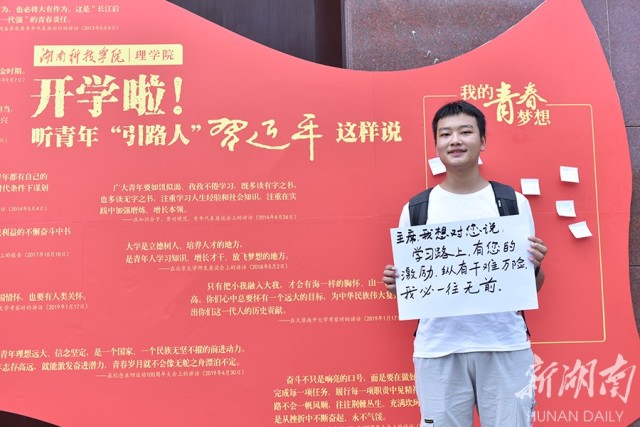 为，也必将大有作为，这是“长江后
一代强”的青春责任。
湖南科技学院 理学院
开学啦！
听青年“引路人”习近平 这样说
我的
青春
梦想
广大青年要如饥似渴、孜孜不倦学习，既多读有字之书，
也多读无字之书，注重学习人生经验和社会知识，注重在实
践中加强磨练、增长本领。
大学是立德树人、培养人才的地方，
是青年人学习知识、增长才干、放飞梦想的地方。
只有把小我融入大我，才会有海一样的胸怀，山一
高。你们心中总要怀有一个远大的目标，为中华民族伟大复
出你们这一代人的历史贡献。
年都有自己的
时代条件下谋划
民利益的不懈奋斗中书
国情怀，也要有人类关怀。
青年理想远大、信念坚定，是一个国家、一个民族无坚不摧的前进动力。
志存高远，就能激发奋进潜力，青春岁月就不会像无舵之舟漂泊不定。
——在纪念五四运动100周年大会上的讲话（2019年4月30日）
奋斗不只是响亮的口号，而是要在做好
完成每一项任务、履行每一项职责中见精神
路不会一帆风顺，往往荆棘丛生、充满坎坷
是从挫折中不断奋起、永不气馁
主席，我想对您说，
学习路上，有您的
激励，纵有千难万险，
我必一往无前。
新湖南
HUNAN DAILY